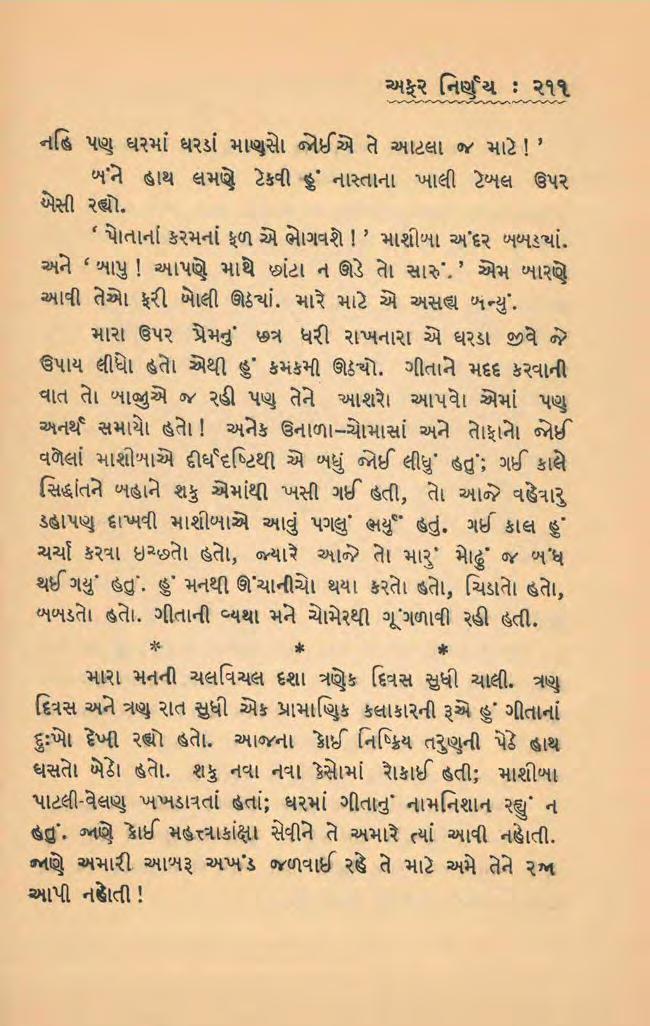 અફર નિર્ણય : ૨૧૧
નહિ પણ ઘરમાં ઘરડાં માણસો જોઈએ તે આટલા જ માટે ! ’
બંને હાથ લમણે ટેકવી હું નાસ્તાના ખાલી ટેબલ ઉપર
બેસી રહ્યો.
‘ પોતાનાં કરમનાં ફળ એ ભોગવશે ! ’ માશીબા અંદર બબડ્યાં.
અને ‘ બાપુ ! આપણે માથે છાંટા ન ઊડે તો સારું. ’ એમ બારણે
આવી તેઓ ફરી બોલી ઊઠ્યાં. મારે માટે એ અસહ્ય બન્યું.
મારા ઉપર પ્રેમનું છત્ર ધરી રાખનારા એ ઘરડા જીવે જે
ઉપાય લીધો હતો એથી હું કમકમી ઊઠ્યો. ગીતાને મદદ કરવાની
વાત તો બાજુએ જ રહી પણ તેને આશરો આપવો એમાં પણ
અનર્થ સમાયો હતો ! અનેક ઉનાળા–ચોમાસાં અને તોફાનો જોઈ
વળેલાં માશીબાએ દીર્ઘદષ્ટિથી એ બધું જોઈ લીધું હતું; ગઈ કાલે
સિદ્ધાંતને બહાને શકુ એમાંથી ખસી ગઈ હતી, તો આજે વહેવારુ
ડહાપણ દાખવી માશીબાએ આવું પગલું ભર્યું હતું. ગઈ કાલ હું
ચર્ચા કરવા ઇચ્છતો હતો, જ્યારે આજે તો મારું મોઢું જ બંધ
થઈ ગયું હતું. હું મનથી ઊંચાનીચો થયા કરતો હતો, ચિડાતો હતો,
બબડતો હતો. ગીતાની વ્યથા મને ચોમેરથી ગૂંગળાવી રહી હતી.
* * *
મારા મનની ચલવિચલ દશા ત્રણેક દિવસ સુધી ચાલી. ત્રણ
દિવસ અને ત્રણ રાત સુધી એક પ્રામાણિક કલાકારની રૂએ હું ગીતાનાં
દુઃખો દેખી રહ્યો હતો. આજના કોઈ નિષ્ક્રિય તરુણની પેઠે હાથ
ઘસતો બેઠો હતો. શકુ નવા નવા કેસોમાં રોકાઈ હતી; માશીબા
પાટલી-વેલણ ખખડાવતાં હતાં; ઘરમાં ગીતાનું નામનિશાન રહ્યું ન
હતું. જાણે કોઈ મહત્ત્વાકાંક્ષા સેવીને તે અમારે ત્યાં આવી નહોતી.
જાણે અમારી આબરૂ અખંડ જળવાઈ રહે તે માટે અમે તેને રજા
આપી નહોતી !